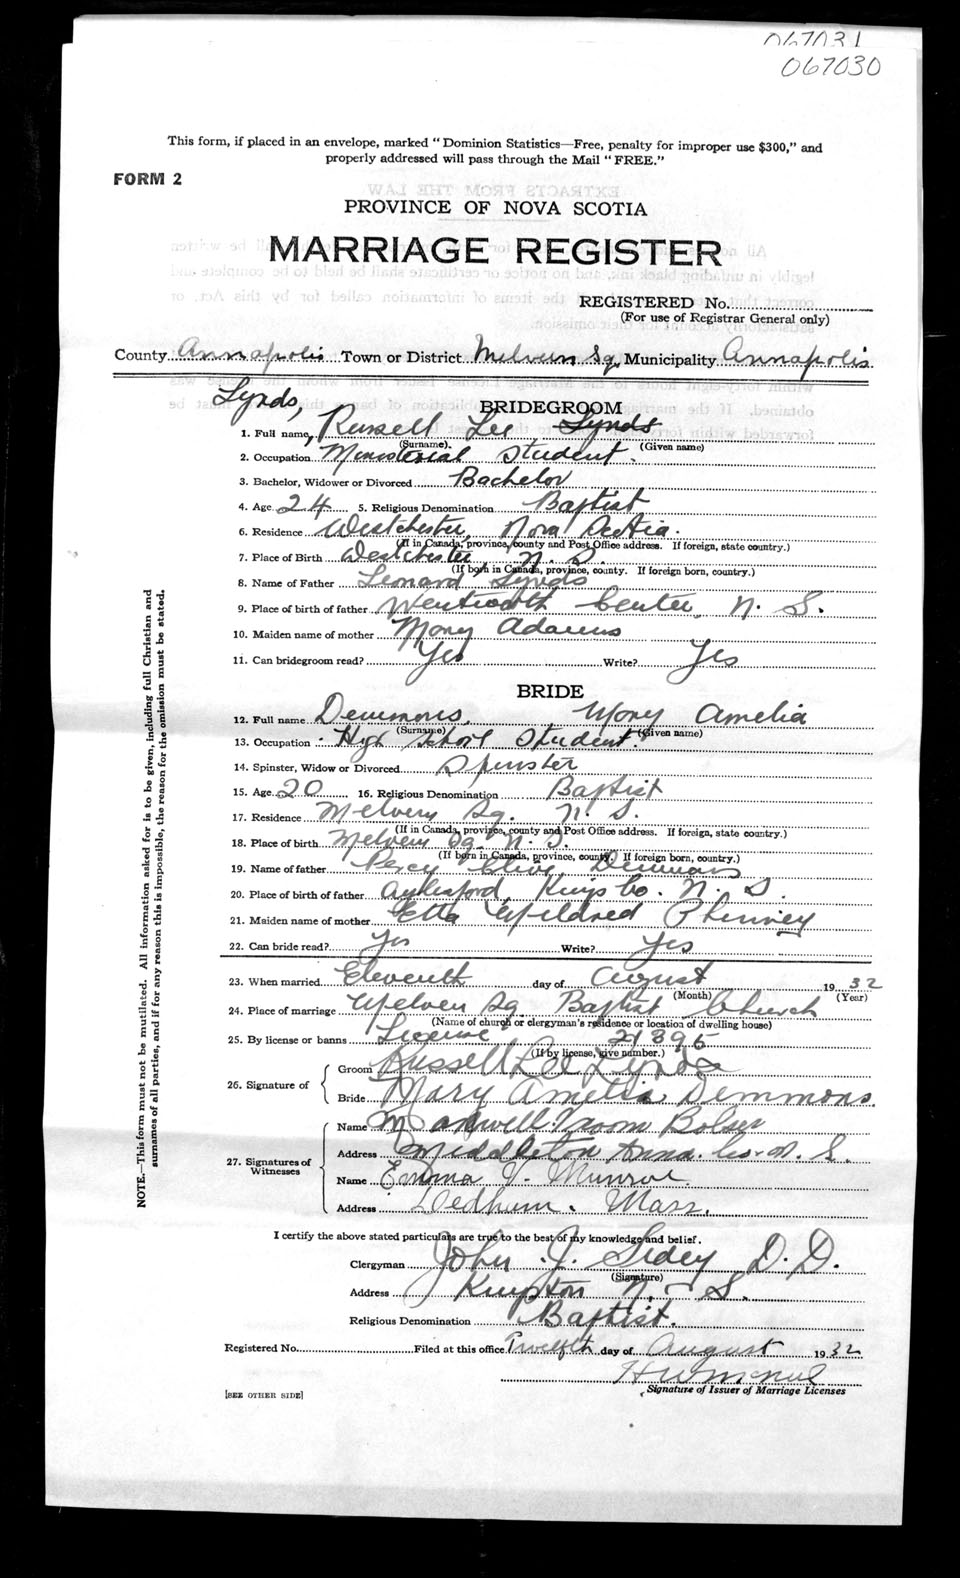 067031
067030
This form, if placed in an envelope, marked "Dominion Statistics—Free, penalty for improper use $300," and
properly addressed will pass through the Mail "FREE."
FORM 2
PROVINCE OF NOVA SCOTIA
MARRIAGE REGISTER
REGISTERED No.
(For use of Registrar General only)
County Annapolis Town or District Melvern Sq. Municipality Annapolis
Lynds,
BRIDEGROOM
1. Full name, Russell Lee Lynds
(Surname). (Given name)
2. Occupation Ministerial Student.
3. Bachelor, Widower or Divorced Bachelor
4. Age 24 5. Religious Denomination Baptist
6. Residence Westchester, Nova Scotia.
(If in Canada, province, county and Post Office address. If foreign, state country.)
7. Place of Birth Westchester, N. S.
(If born in Canada, province, county. If foreign born, country.)
8. Name of Father Leonard Lynds
9. Place of birth of father Wentworth Center, N. S.
10. Maiden name of mother Mary Adams
11. Can bridegroom read? Yes Write? Yes
BRIDE
12. Full name Demmons, Mary Amelia
(Surname) (Given name)
13. Occupation High School Student.
14. Spinster, Widow or Divorced Spinster
15. Age 20 16. Religious Denomination Baptist
17. Residence Melvern Sq. N. S.
(If in Canada, province, county and Post Office address. If foreign, state country.)
18. Place of birth Melvern Sq. N. S.
(If born in Canada, province, county. If foreign born, country.)
19. Name of father Percy Demmons
20. Place of birth of father Aylesford, Kings Co. N. S.
21. Maiden name of mother Etta Mildred Phinney
22. Can bride read? Yes Write? Yes
23. When married Eleventh day of August 1932
(Month) (Year)
24. Place of marriage Melvern Sq. Baptist Church
(Name of church or clergyman's residence or location of dwelling house)
25. By license or banns License 21895
(If by license, give number.)
26. Signature of
Groom Russell Lee Lynds
Bride Mary Amelia Demmons.
27. Signatures of
Witnesses
Name Maxwell Vroom Bolser
Address Middleton Anna. Co. N. S.
Name Emma J. Munroe
Address Dedham. Mass.
I certify the above stated particulars are true to the best of my knowledge and belief.
Clergyman John J. Sidey D. D.
(Signature)
Address Kingston N. S.
Religious Denomination Baptist.
Registered No. Filed at this office Twelfth day of August 1932
Signature of Issuer of Marriage Licenses
[SEE OTHER SIDE]
NOTE.—This form must not be mutilated. All information asked for is to be given, including full Christian and
surnames of all parties, and if for any reason this is impossible, the reason for the omission must be stated.